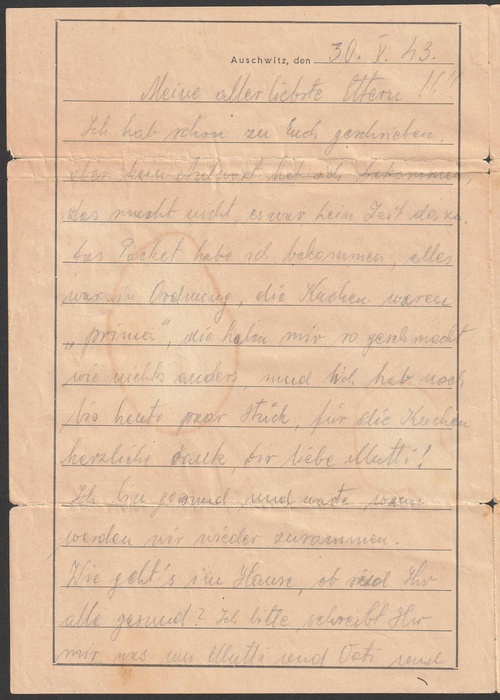 Auschwitz, den 30. V. 43.
Meine allerliebste Eltern !!!
Ich hab schon zu Euch geschrieben,
aber kein Antwort hab ich bekommen,
das macht nicht, es war kein Zeit dazu.
Das Packet habe ich bekommen, alles
war in Ordnung, die Kuchen waren
„prima“, die haben mir so geschmackt
wie nichts anders, und ich hab noch
bis heute paar Stück, für die Kuchen
herzliche Dank, Dir liebe Mutti!
Ich bin gesund, und warte wann
werden wir wieder zusammen.
Wie geht's im Hause, ob seid Ihr
alle gesund? Ich bitte, schreibt Ihr
mir was von Mutti und Vati und